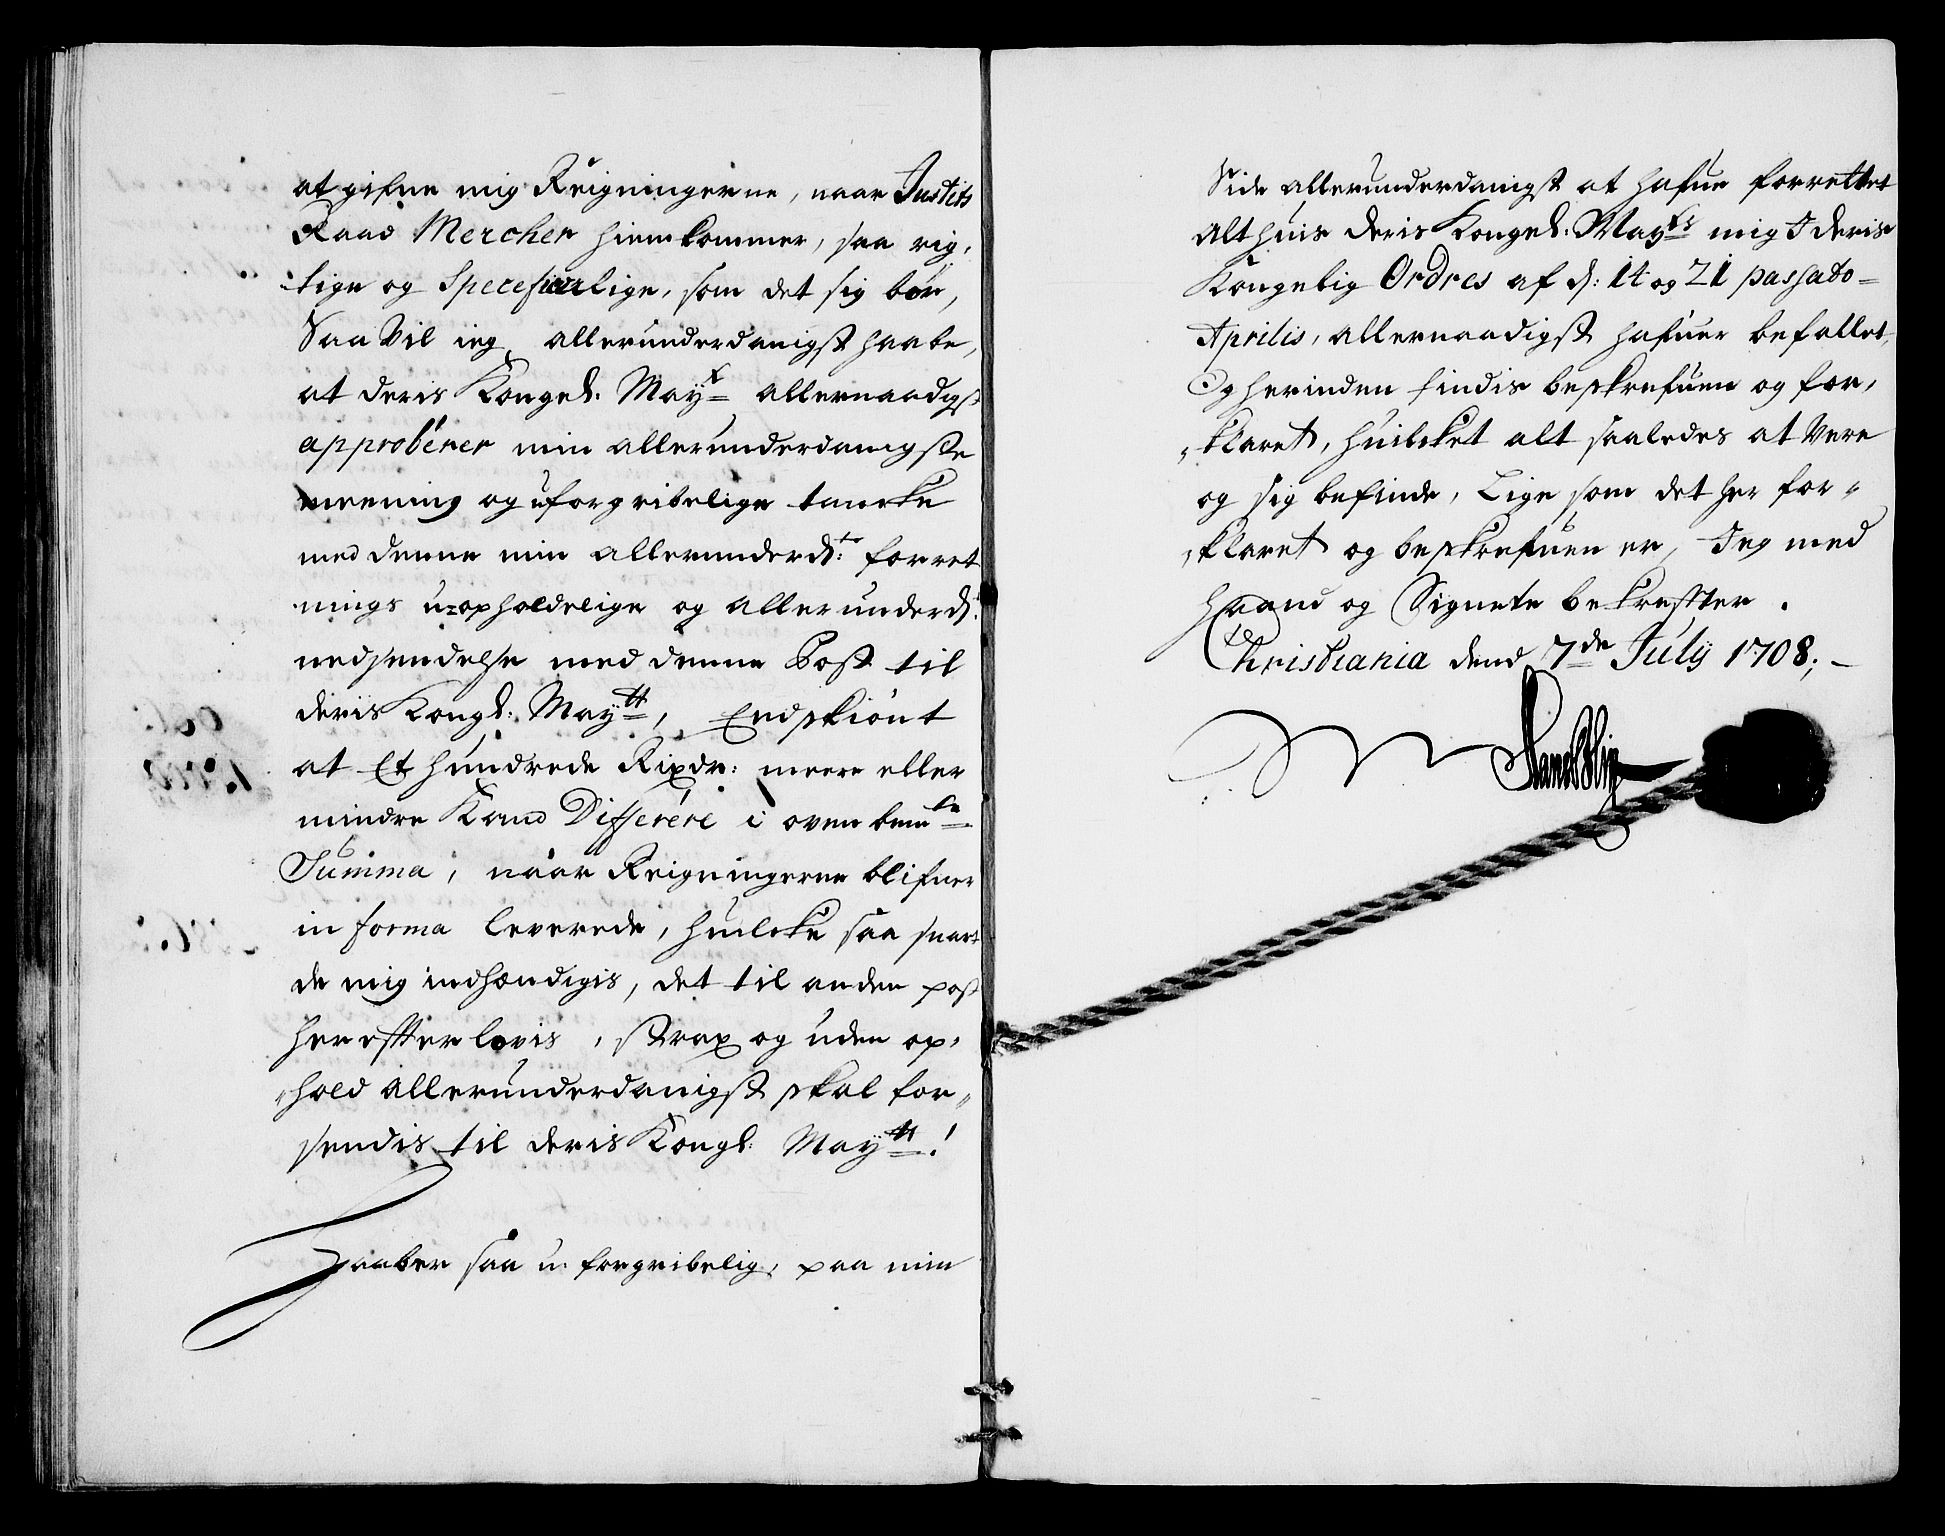 at gifue mig Reigningerne, naar Justits
Raad Mercher hiemkommer, saa rig,
tige og Specificerlige, som det sig bør,
Saa Vil ieg allerunderdanigst haabe,
at deris Kongel. Mayt allernaadigst
approberer min allerunderdanigste
meening og uforgribelige tancke
med denne min allerunderd: forret
nings u=opholdelige og allerunderd:
nedsendelse med denne Post til
deris Kongl: Maytt, Endskiønt
at Et hundrede Rixdr: meere eller
mindre Kand Differere i ovenbemte
Summa, naar Reigningerne blifuer
in forma leverede, huilcke saa snart
de mig indhændigis, det til anden post
her effter lovis, strax og uden op,
hold allerunderdanigst skal for,
sendis til deris Kongl: Maytt!
Haaber saa u: forgribelig, paa min
Side allerunderdanigst at hafue forrettet
alt huis deris Kongel: Mayts mig I deris
Kongelig Ordres af d: 14 og 21 passato
Aprilis, allernaadigst hafuer befallet,
Og herinden findis beskrefuen og for,
klaret, huilcket alt saaledes at Vere
og sig befinde, Lige som det her for,
klaret og beskrefuen er, Jeg med
Haand og Signete bekreffter.
Christiania dend 7de July 1708;